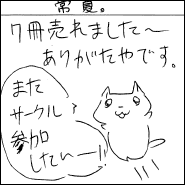 常夏。
7冊売れました～
ありがたやです。
また
サークル
参加
したいーー!!